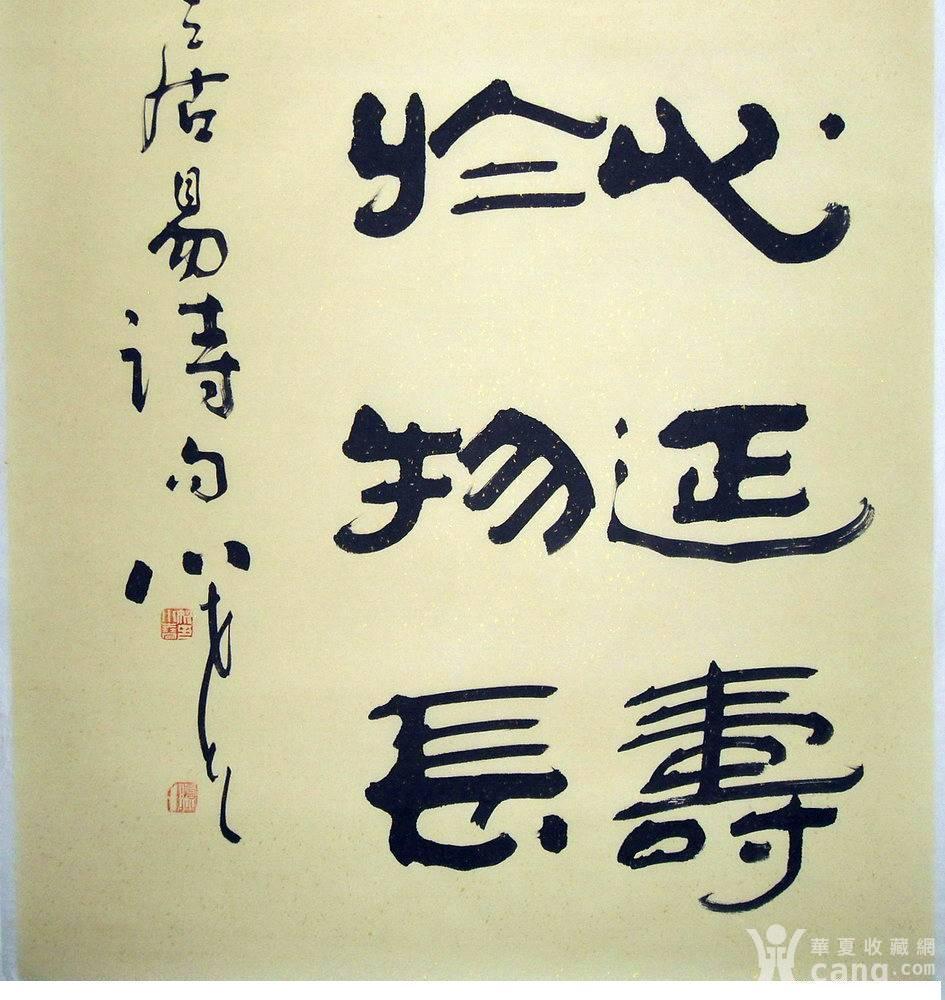 必延壽
於物長
居易詩句
華夏收藏網
cang.com